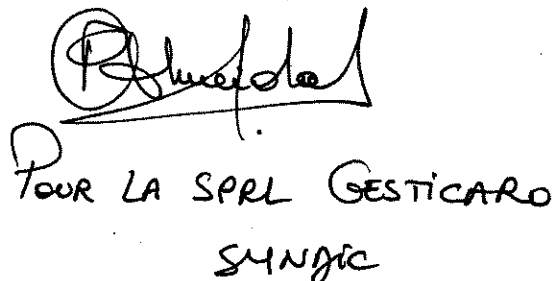 Pour LA SPRL GESTICARO
SYNDIC